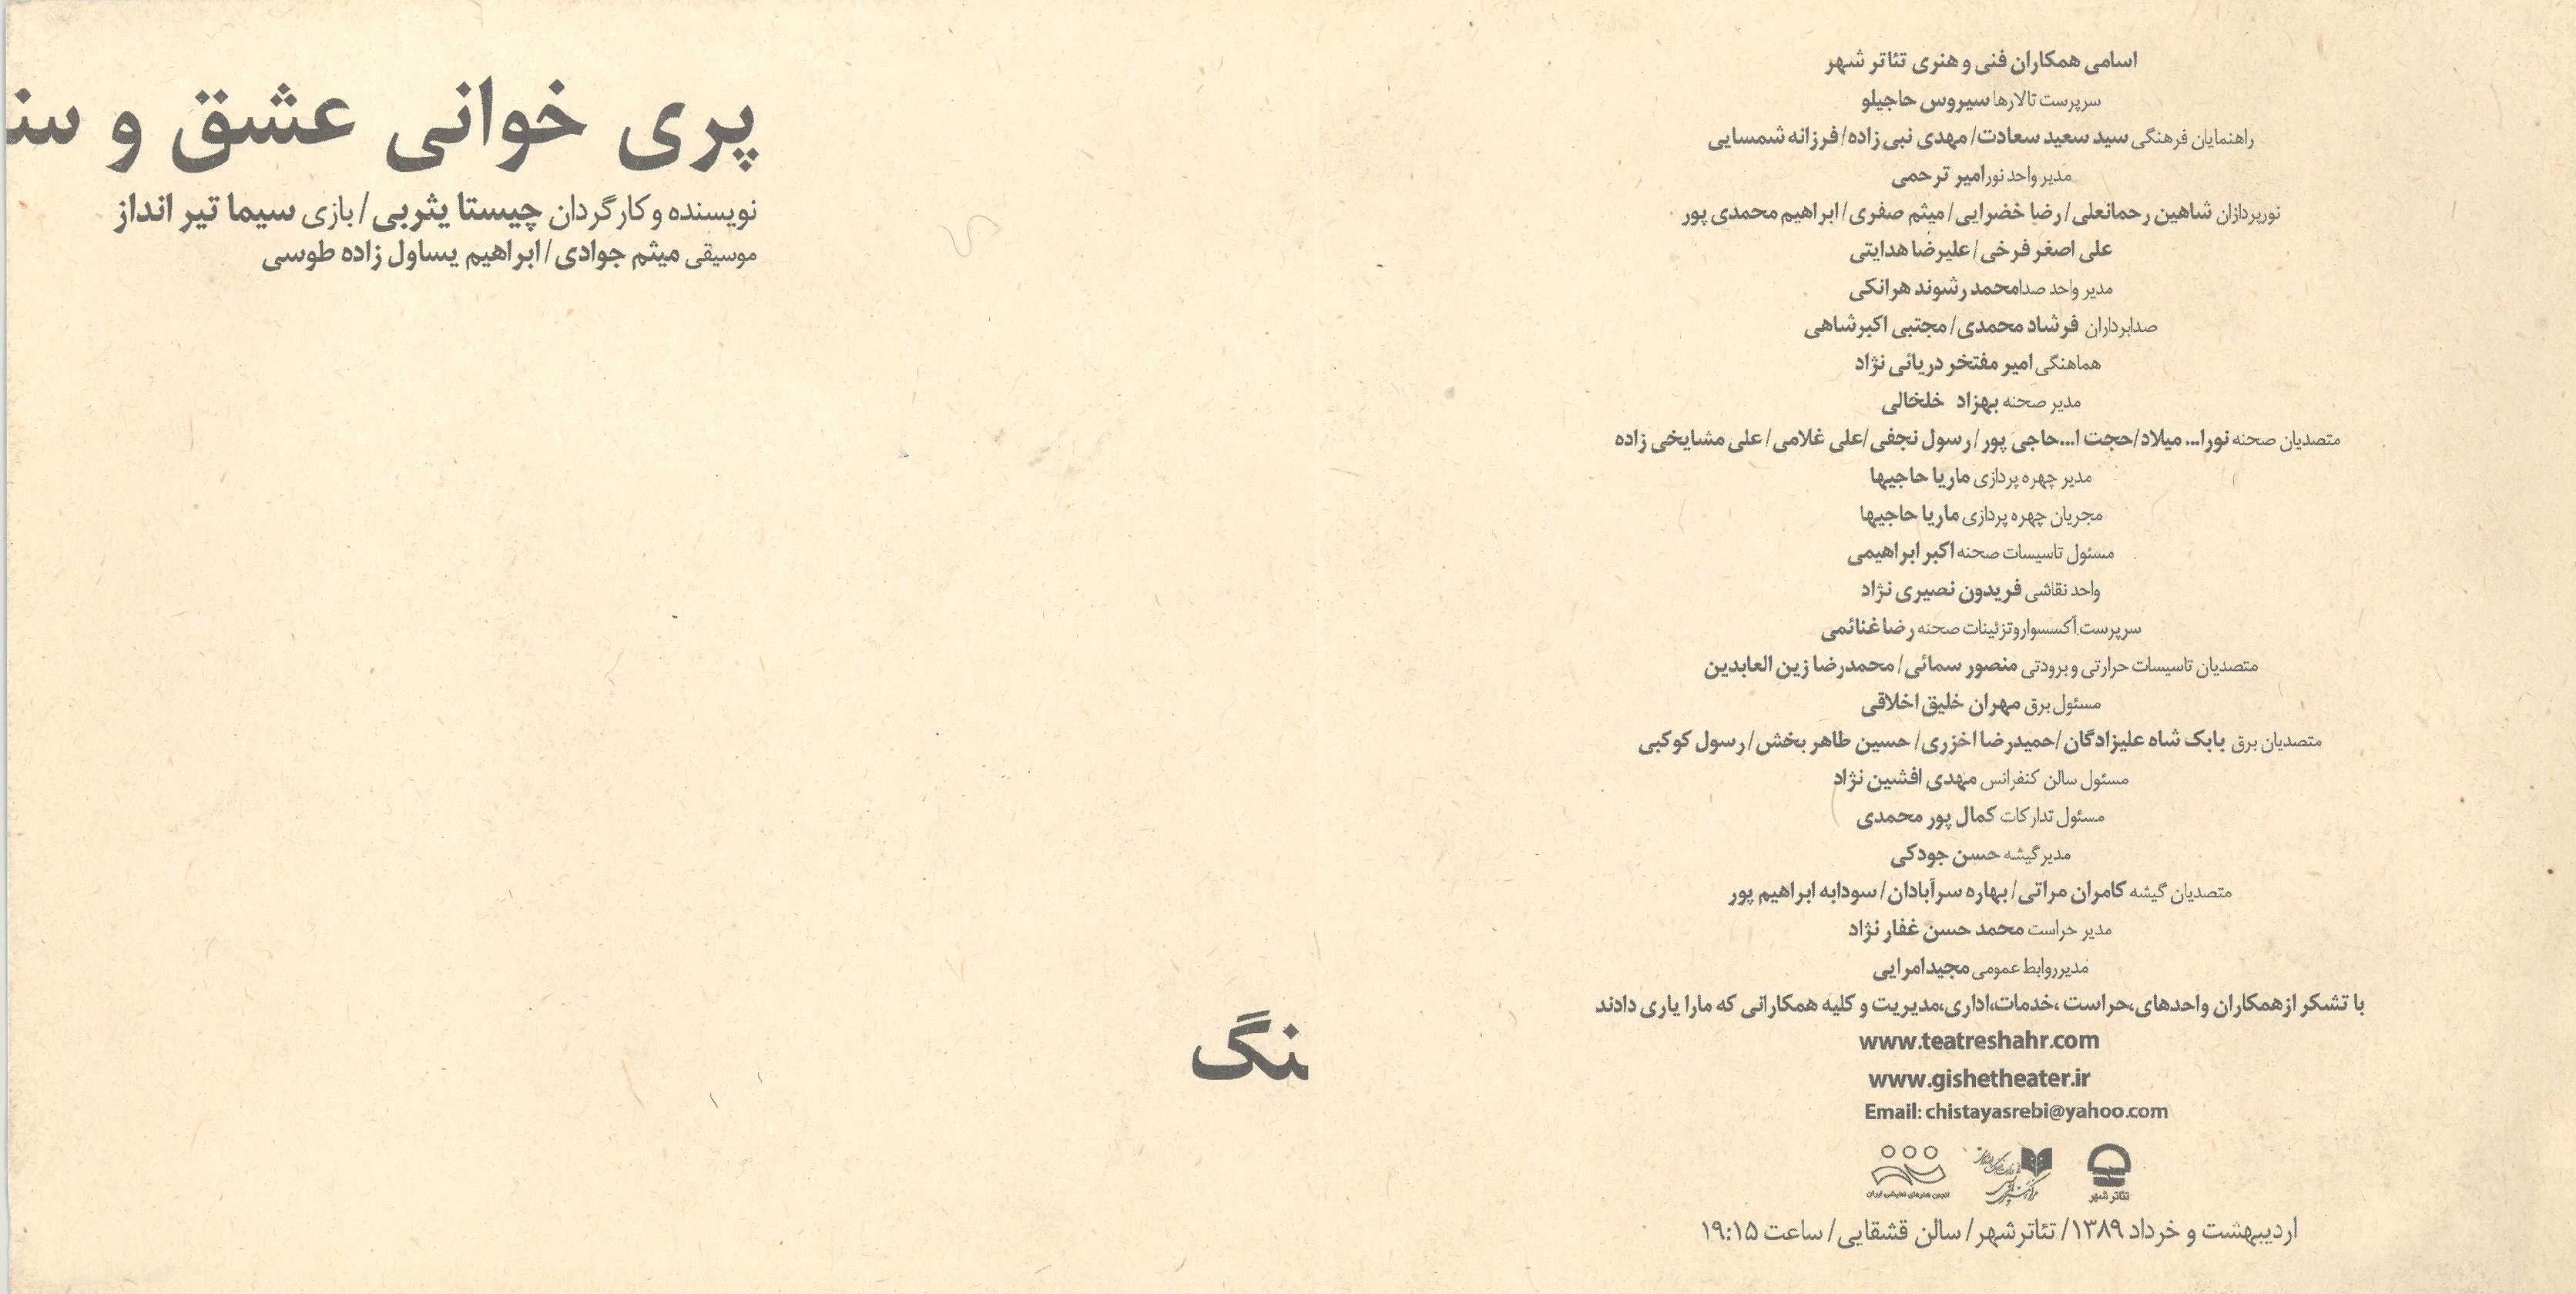 پری خوانی عشق و سنـ
نویسنده و کارگردان چیستا یثربی/بازی سیما تیر انداز
موسیقی میثم جوادی/ابراهیم یساول زاده طوسی
ـنگ
اسامی همکاران فنی و هنری تئاتر شهر
سرپرست تالارها سیروس حاجیلو
راهنمایان فرهنگی سید سعید سعادت/ مهدی نبی زاده/فرزانه شمسایی
مدیر واحد نور امیر ترحمی
نورپردازان شاهین رحمانعلی/رضا خضرایی/ میثم صفری/ابراهیم محمدی پور
علی اصغر فرخی/علیرضا هدایتی
مدیر واحد صدا محمد رشوند هرانکی
صدابرداران فرشاد محمدی/ مجتبی اکبرشاهی
هماهنگی امیر مفتخر دریائی نژاد
مدیر صحنه بهزاد خلخالی
متصدیان صحنه نورا... میلاد/حجت ا...حاجی پور/رسول نجفی/علی غلامی/علی مشایخی زاده
مدیر چهره پردازی ماریا حاجیها
مجریان چهره پردازی ماریا حاجیها
مسئول تاسیسات صحنه اکبر ابراهیمی
واحد نقاشی فریدون نصیری نژاد
سرپرست آکسسوار و تزئینات صحنه رضا غنائمی
متصدیان تاسیسات حرارتی و برودتی منصور سمائی/ محمدرضا زین العابدین
مسئول برق مهران خلیق اخلاقی
متصدیان برق بابک شاه علیزادگان/حمیدرضا اخزری/ حسین طاهر بخش/رسول کوکبی
مسئول سالن کنفرانس مهدی افشین نژاد
مسئول تدارکات کمال پور محمدی
مدیر گیشه حسن جودکی
متصدیان گیشه کامران مراتی/ بهاره سرآبادان/ سودابه ابراهیم پور
مدیر حراست محمد حسن غفار نژاد
مدیر روابط عمومی مجید امرایی
با تشکر از همکاران واحدهای،حراست ،خدمات،اداری،مدیریت و کلیه همکارانی که مارا یاری دادند
www.teatreshahr.com
www.gishetheater.ir
Email: chistayasrebi@yahoo.com
تئاتر شهر
انجمن هنرهای نمایشی ایران
اردیبهشت و خرداد ۱۳۸۹/ تئاترشهر/ سالن قشقایی/ ساعت ۱۹:۱۵